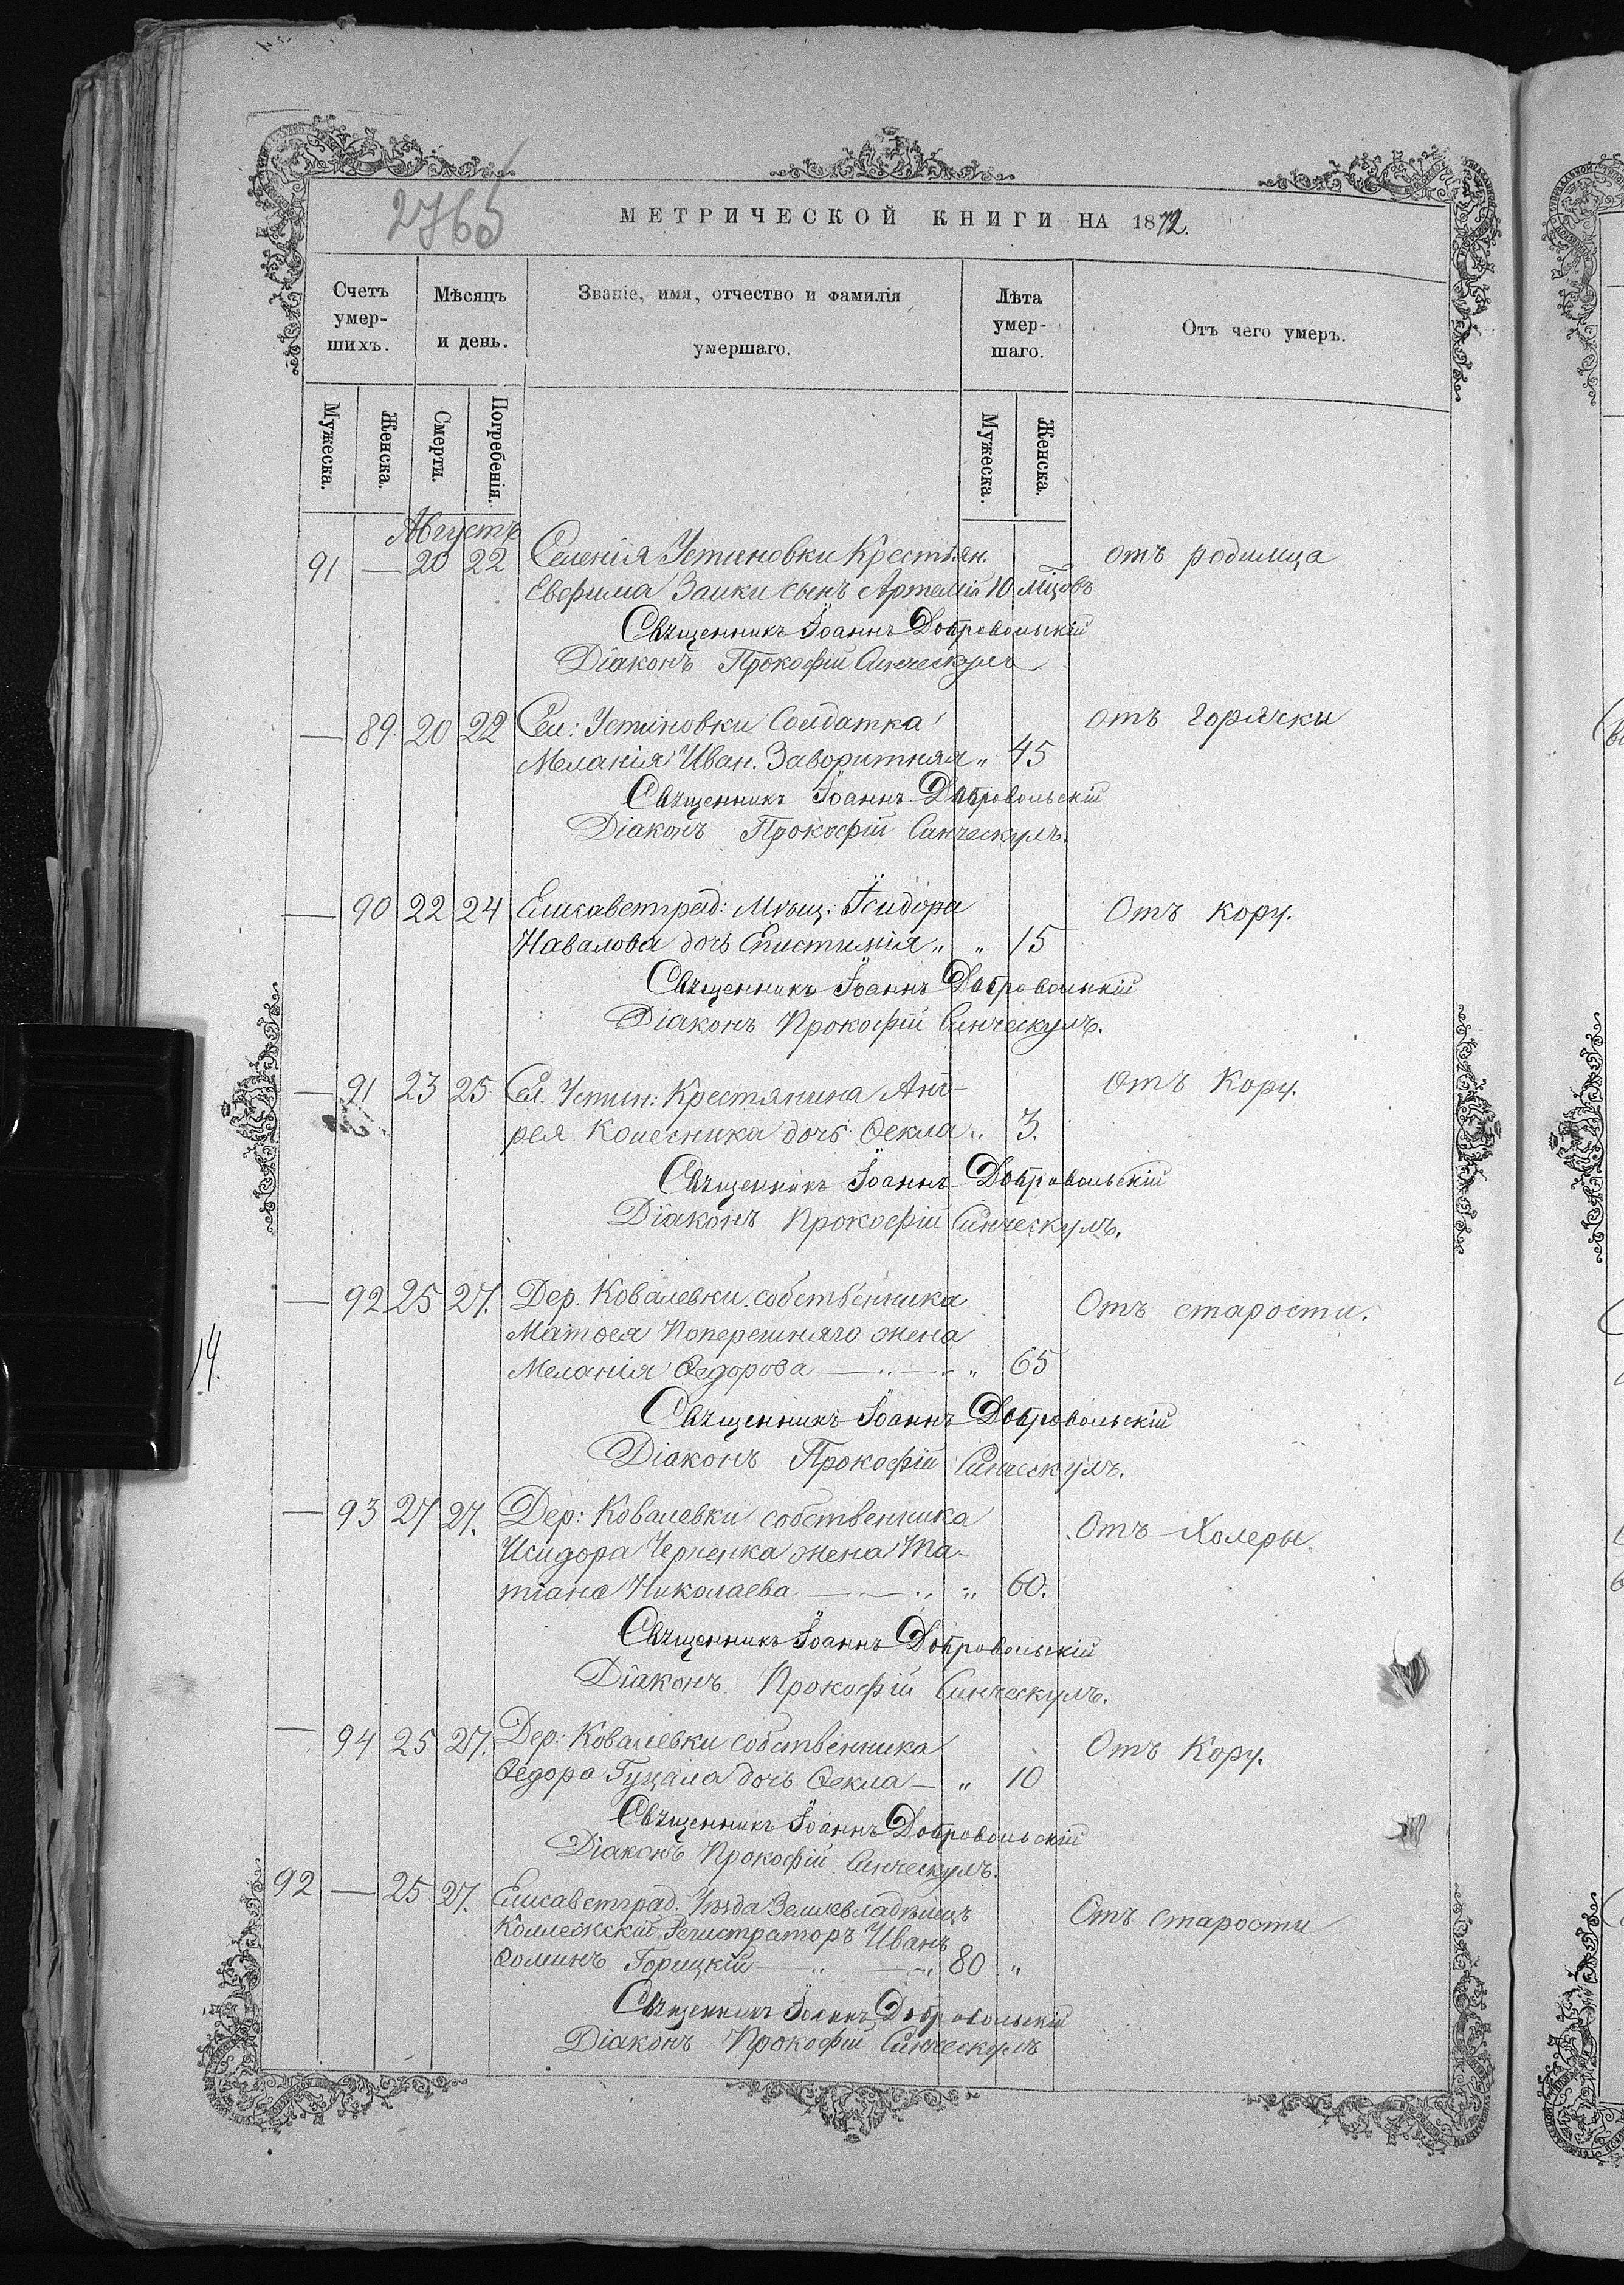 2765
МЕТРИЧЕСКОЙ КНИГИ НА 1872.
Счетъ умер-шихъ.
Мѣсяцъ и день.
Званіе, имя, отчество и фамилія умершаго.
Лѣта умер-шаго.
Отъ чего умеръ.
Мужеска.
Женска.
Смерти.
Погребенія.
Мужеска.
Женска.
Августъ
91 — 20 22 Селенія Устиновки Крестьян. отъ родимца
Евфима Заики сынъ Артемій 10 мцовъ
Священникъ Іоаннъ Добровольскій
Діаконъ Прокофій Синческулъ
— 89. 20 22 Сел: Устиновки Солдатка отъ горячки
Меланія Иван. Заворитняя " 45
Священникъ Іоаннъ Добровольскій
Діаконъ Прокофій Синческулъ.
— 90 22 24 Елисаветград: Мѣщ: Ісидора Отъ кору.
Навалова дочь Епистимія " " 15
Священникъ Іоаннъ Добровольскій
Діаконъ Прокофій Синческулъ.
— 91 23 25 Сел. Устин: Крестянина Анд- Отъ Кору.
рея Колесника дочь Ѳекла " 3.
Священникъ Іоаннъ Добровольскій
Діаконъ Прокофій Синческулъ.
— 92 25 27. Дер. Ковалевки собственника Отъ старости.
Матѳея Поперешняго жена
Меланія Ѳедорова — " — " 65
Священникъ Іоаннъ Добровольскій
Діаконъ Прокофій Синческулъ.
14.
— 93 27 27. Дер: Ковалевки собственника Отъ Холеры.
Исидора Черненка жена Та-
тіана Николаева — " — " " 60.
Священникъ Іоаннъ Добровольскій
Діаконъ Прокофій Синческулъ.
— 94 25 27. Дер: Ковалевки собственника Отъ Кору.
Ѳедора Гуцала дочь Ѳекла — " 10
Священникъ Іоаннъ Добровольскій
Діаконъ Прокофій Синческулъ.
92 — 25 27. Елисаветград. Уѣзда Землевладѣлецъ Отъ старости
Коллежскій Регистраторъ Иванъ
Ѳоминъ Горицкій — " — " 80 "
Священникъ Іоаннъ Добровольскій
Діаконъ Прокофій Синческулъ